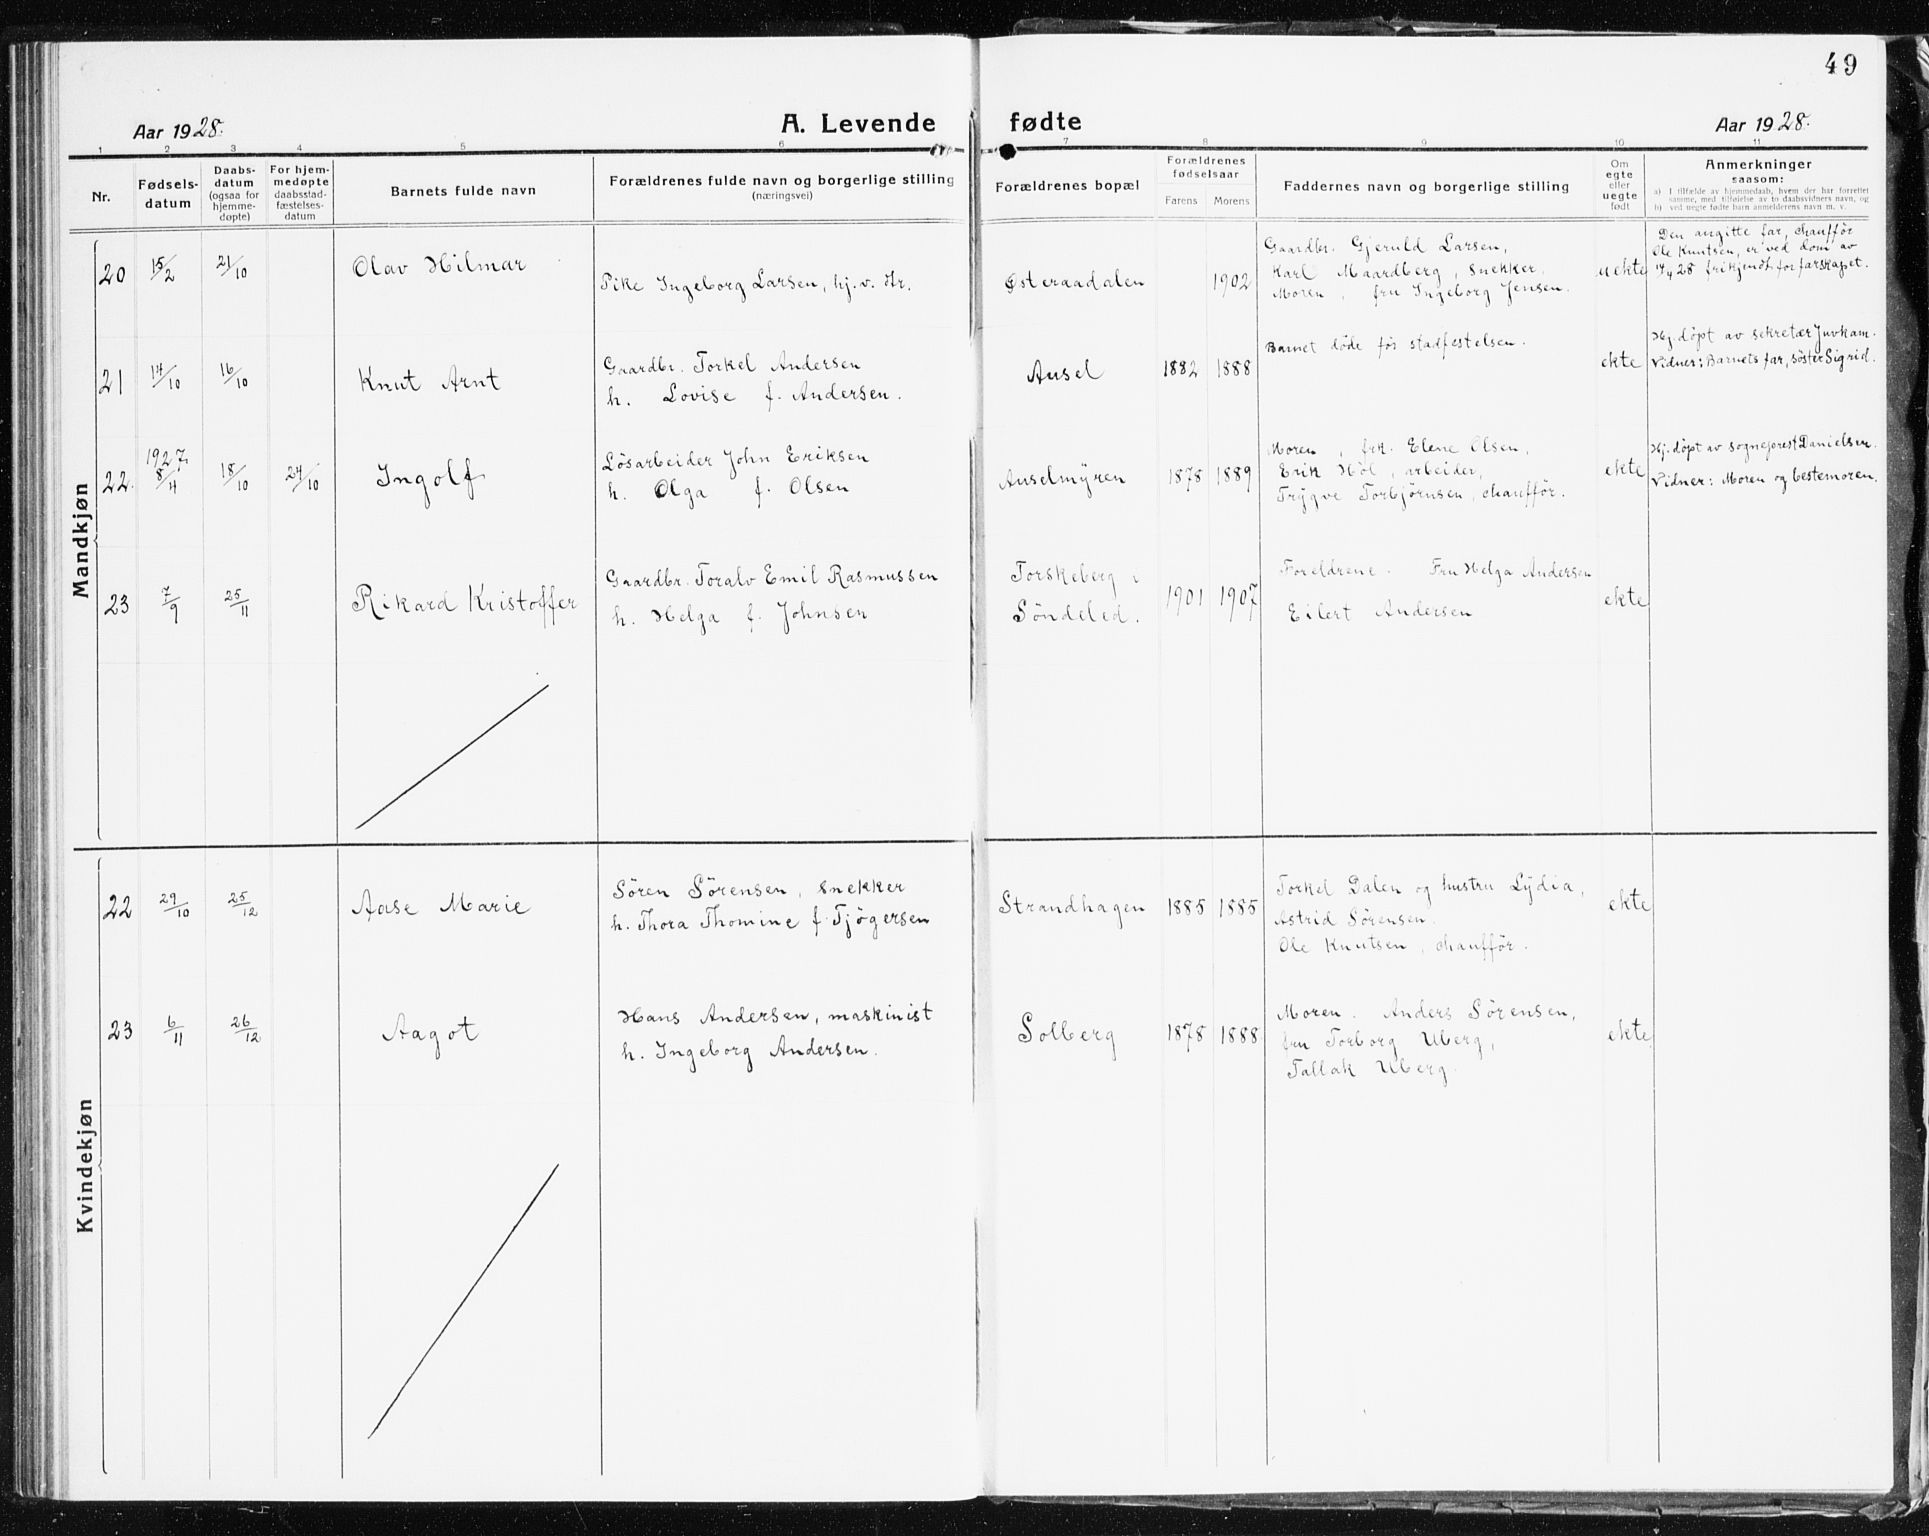 49
Aar 1928.
A. Levende fødte
Aar 1928.
1 2 3 4 5 6 7 8 9 10 11
Nr.
Fødsels-
datum
Daabs-
datum
(ogsaa for
hjemme-
døpte)
For hjem-
medøpte
daabsstad-
fæstelses-
datum
Barnets fulde navn
Forældrenes fulde navn og borgerlige stilling
(næringsvei)
Forældrenes bopæl
Forældrenes
fødselsaar
Farens Morens
Faddernes navn og borgerlige stilling
Om
egte
eller
uegte
født
Anmerkninger
saasom:
a) I tilfælde av hjemmedaab, hvem der har forrettet
samme, med tilføielse av to daabsvidners navn, og
b) ved uegte fødte barn anmelderens navn m. v.
Mandkjøn
20
15/2
21/10
Olav Hilmar
Pike Ingeborg Larsen, hj. v. str.
Østeraadalen
1902
Gaardbr. Gjeruld Larsen,
Karl Maardberg, snekker.
Moren, fru Ingeborg Jensen.
uekte
Den angitte far, chauffør
Ole Knutsen, er ved dom av
28 frikjendt for farskapet.
21
14/10
16/10
Knut Arnt
Gaardbr. Torkel Andersen
h. Lovise f. Andersen.
Ausel
1882 1888
Barnet døde før stadfestelsen.
ekte
Hj. døpt av sekretær Juvkam.
Vidner: Barnets far, søster Sigrid.
22.
1927
8/4
18/10
24/10
Ingolf
Løsarbeider John Eriksen
h. Olga f. Olsen
Auselmyren
1878 1889
Moren, frk. Elene Olsen,
Erik Høl, arbeider,
Trygve Torbjørnsen, chauffør.
ekte
Hj. døpt av sogneprest Danielsen.
Vidner: Moren og bestemoren.
23
7/9
25/11
Rikard Kristoffer
Gaardbr. Toralv Emil Rasmussen
h. Helga f. Johnsen
Torskeberg i
Søndeled.
1901 1907
Foreldrene. Fru Helga Andersen
Eilert Andersen
ekte
Kvindekjøn
22
29/10
25/12
Aase Marie
Søren Sørensen, snekker
h. Thora Thomine f. Tjøgersen
Strandhagen
1885 1885
Torkel Dalen og hustru Lydia,
Astrid Sørensen.
Ole Knutsen, chauffør.
ekte
23
6/11
26/12
Aagot
Hans Andersen, maskinist
h. Ingeborg Andersen.
Solberg
1878 1888
Moren. Anders Sørensen,
fru Torborg Uberg,
Tallak Uberg.
ekte